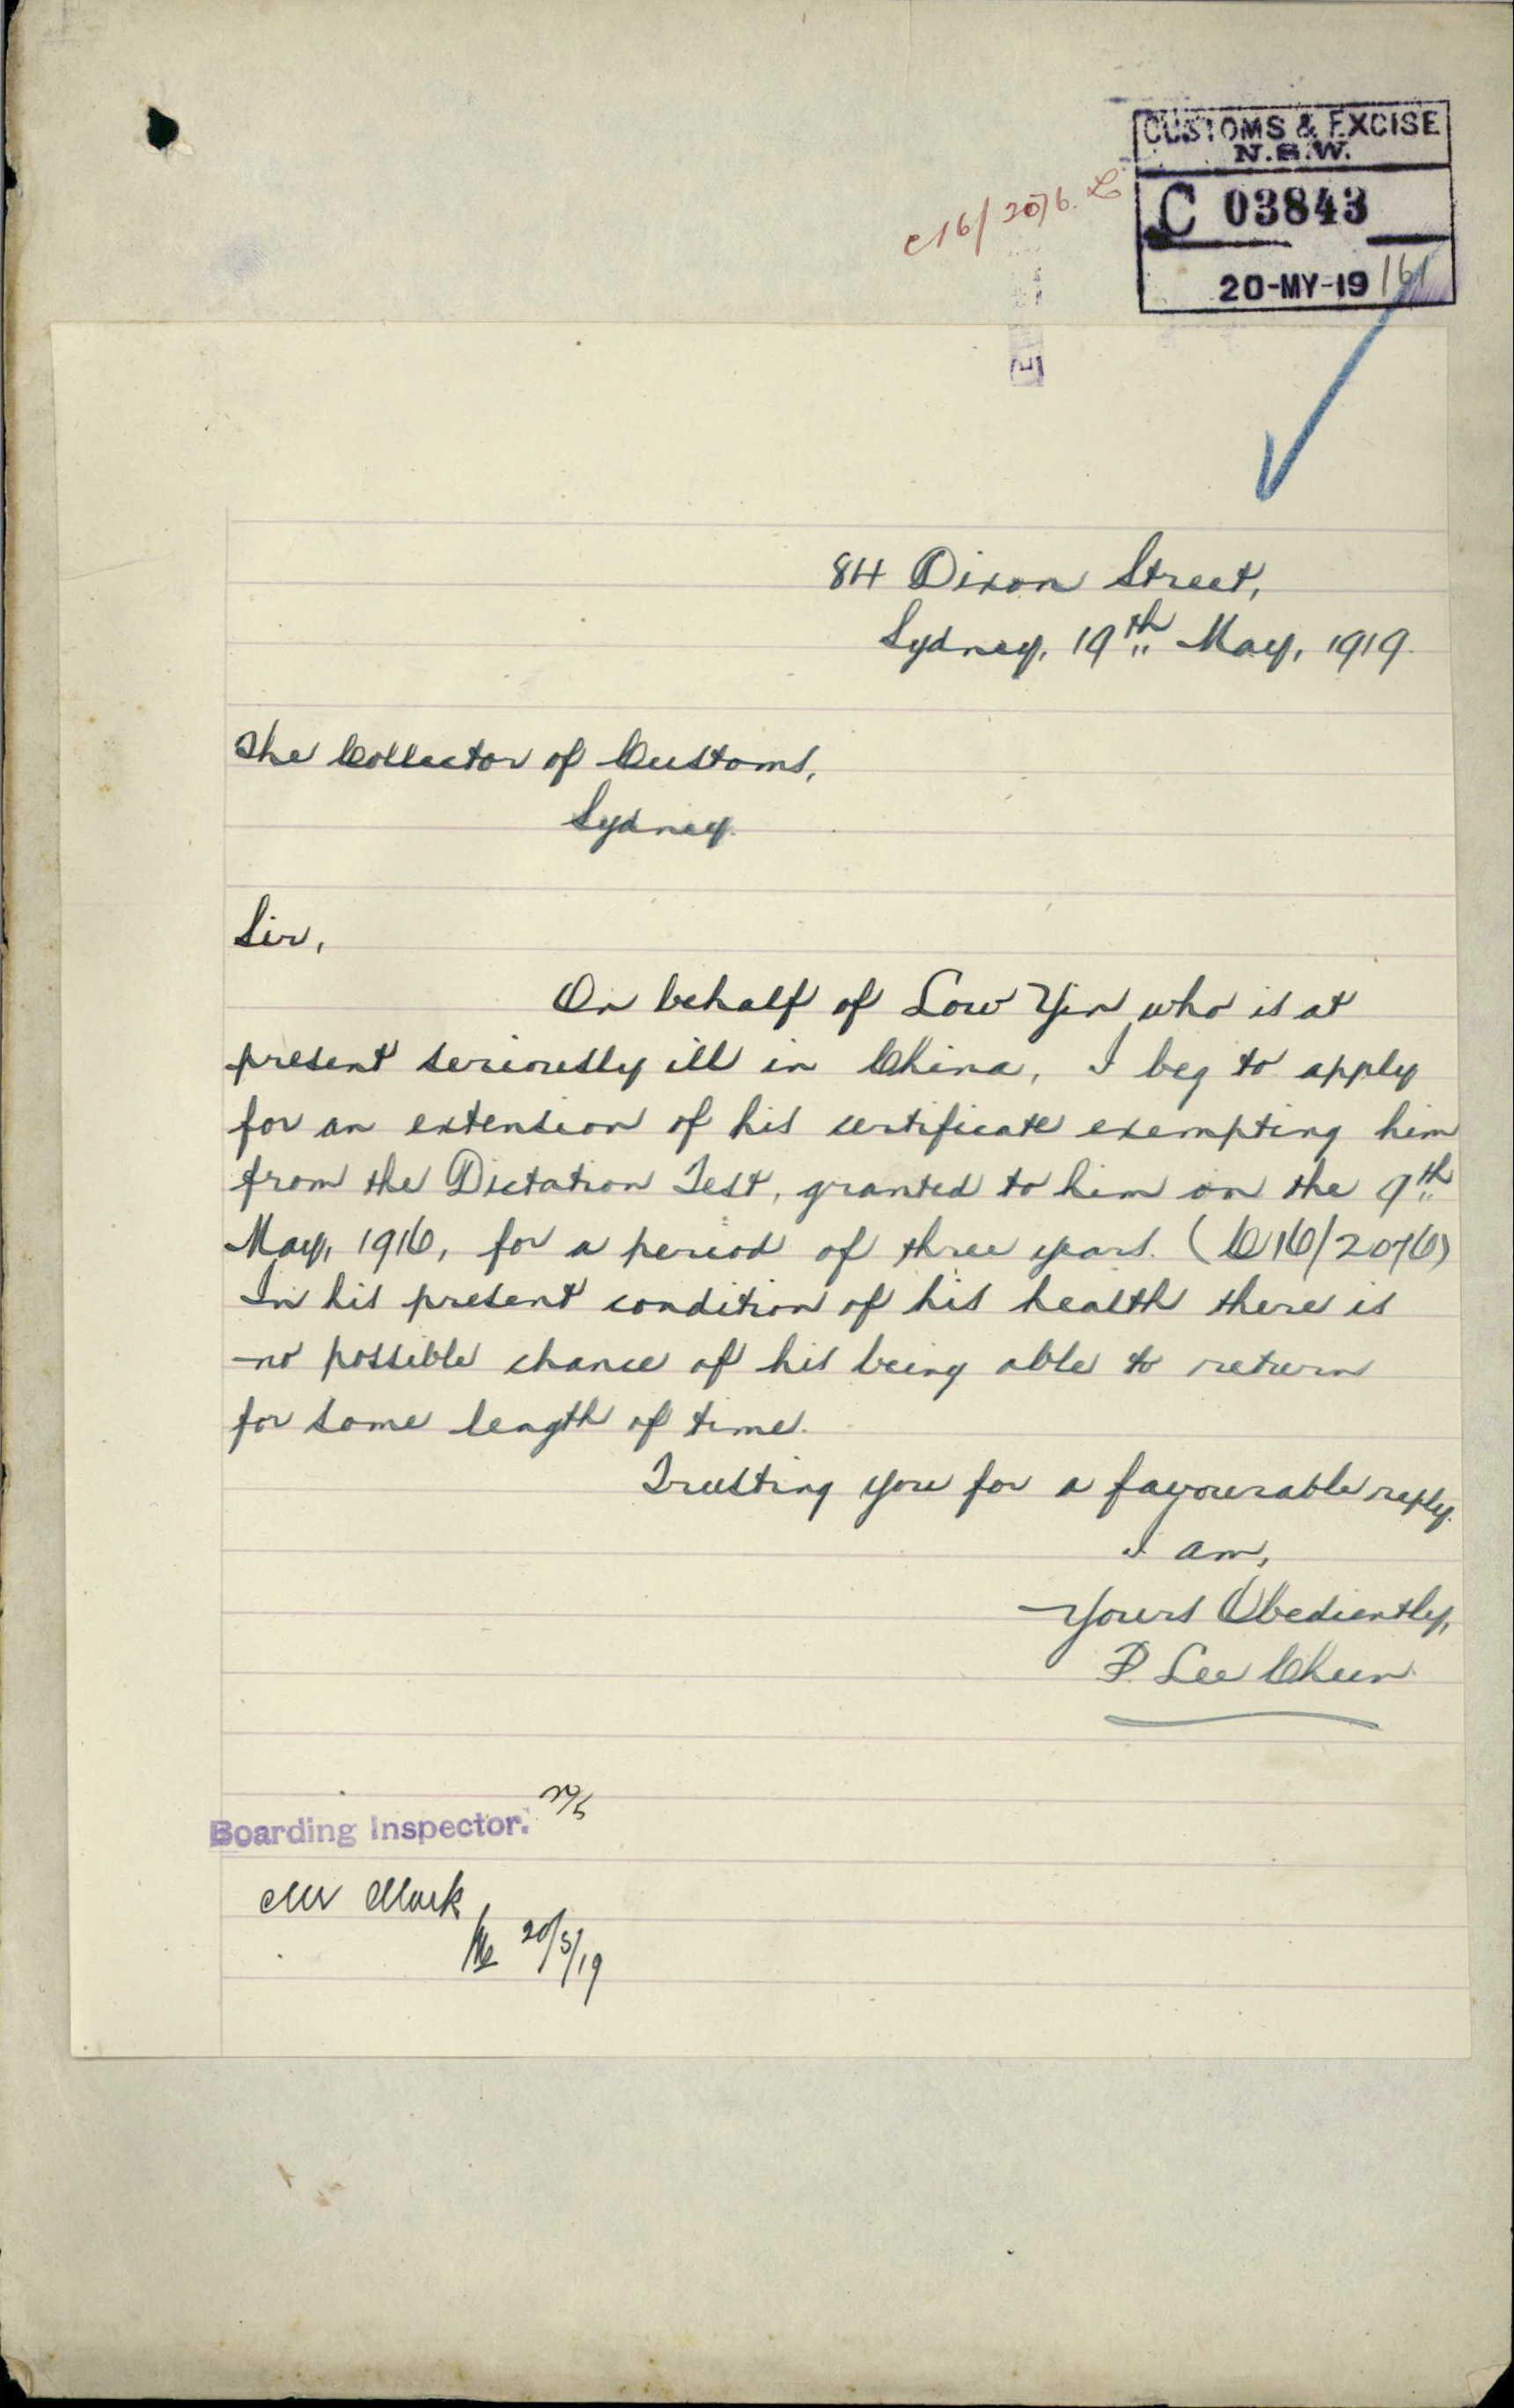 CUSTOMS & EXCISE
N.S.W.
C 03843
20-MY-19
C16/2076.
84 Dixon Street,
Sydney, 19th May, 1919.
The Collector of Customs,
Sydney.
Sir,
On behalf of Low Yin who is at
present seriously ill in China, I beg to apply
for an extension of his certificate exempting him
from the Dictation Test, granted to him on the 9th
May, 1916, for a period of three years. (C16/2076)
In his present condition of his health there is
no possible chance of his being able to return
for some length of time.
Trusting you for a favourable reply.
I am,
Yours Obediently,
P. Lee Chun.
Boarding Inspector.
Mr Mark
20/5/19